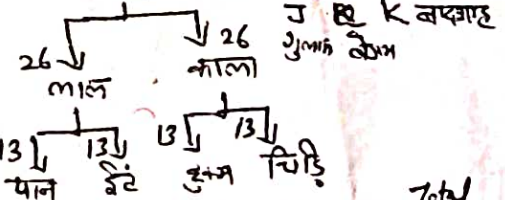 J Q K बादशाह
गुलाम बेगम
26 26
लाल काला
13 13 13 13
पान ईंट हुक्म चिड़ि
Total